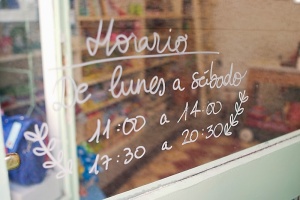 Horario
De lunes a sábado
11:00 a 14:00
17:30 a 20:30